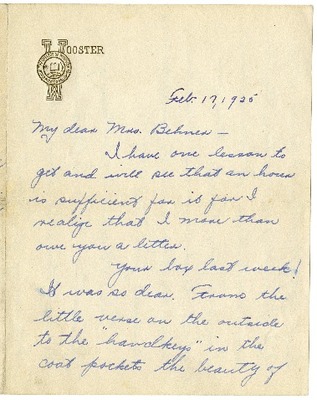 WOOSTER
Feb. 17, 1925
My dear Mrs. Behner –
I have one lesson to
get and will see that an hour
is sufficient for it for I
realize that I more than
owe you a letter.
Your box last week!
It was so dear. From the
little verse on the outside
to the "handkeys" in the
coat pockets the beauty of